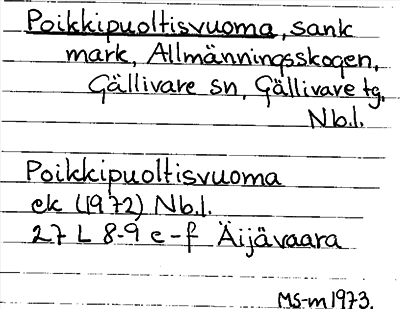 Poikkipuoltisvuoma, sank
mark, Allmänningsskogen,
Gällivare sn, Gällivare tg,
Nb.l.
Poikkipuoltisvuoma
ek (1972) Nb.l.
27 L 8-9 e-f Äijävaara
MS-m 1973.